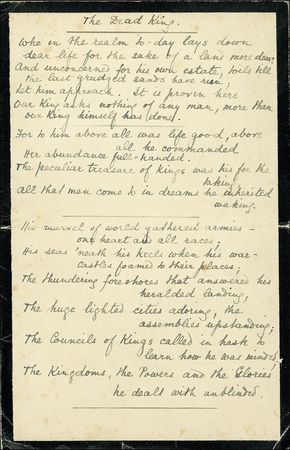 The Dead King.
Who in the realm to-day lays down
dear life for the sake of a land more dear
And unconcerned for his own estate, toils till
the last grudged sands have run.
Let him approach. It is proven here
Our King asks nothing of any man, more than
our King himself has done.
For to him above all was life good, above
all he commanded
Her abundance full-handed.
The peculiar treasure of Kings was his for the
taking:
All that men come to in dreams he inherited
waking.
His marvel of world gathered armies –
one heart and all races;
His seas 'neath his keels when his war-
castles foamed to their places;
The thundering foreshores that answered his
heralded landing,
The huge lighted cities adoring, the
assemblies upstanding;
The Councils of Kings called in haste to
learn how he was minded,
The Kingdoms, the Powers and the Glories
he dealt with unblinded.